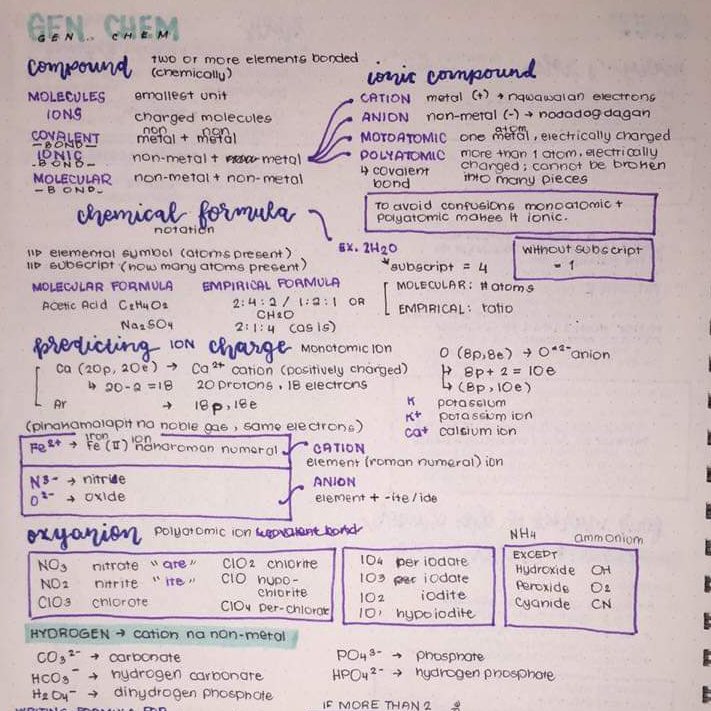 GEN. CHEM
GEN. CHEM
compound two or more elements bonded
(chemically)
MOLECULES smallest unit
IONS charged molecules
COVALENT non non
-BOND- metal + metal
IONIC non-metal + metal
-BOND-
MOLECULAR non-metal + non-metal
-BOND-
ionic compound
CATION metal (+) → nawawalan electrons
ANION non-metal (-) → nadadagdagan
atom
MOTOATOMIC one metal, electrically charged
POLYATOMIC more than 1 atom, electrically
↳ covalent charged; cannot be broken
bond into many pieces
to avoid confusions monoatomic +
polyatomic makes it ionic.
chemical formula
notation
elemental symbol (atoms present)
subscript (how many atoms present)
EX. 2H2O
subscript = 4
without subscript
= 1
MOLECULAR: # atoms
EMPIRICAL: ratio
MOLECULAR FORMULA EMPIRICAL FORMULA
Acetic Acid C2H4O2 2:4:2 / 1:2:1 OR
CH2O
Na2SO4 2:1:4 (as is)
predicting ION charge Monotomic Ion
Ca (20p, 20e) → Ca²⁺ cation (positively charged)
↳ 20-2 = 18 20 protons, 18 electrons
Ar → 18p, 18e
(pinakamalapit na noble gas, same electrons)
O (8p, 8e) → O⁻²⁻ anion
↳ 8p + 2 = 10e
↳ (8p, 10e)
K potassium
K+ potassium ion
Ca+ calsium ion
iron ion
Fe²⁺ → Fe (II) naharoman numeral
CATION
element (roman numeral) ion
N³⁻ → nitride
O²⁻ → oxide
ANION
element + -ite/ide
oxyanion Polyatomic ion covalent bond
NO3 nitrate "ate" ClO2 chlorite
NO2 nitrite "ite" ClO hypo-
chlorite
ClO3 chlorate ClO4 per-chlorate
IO4 periodate
IO3 per iodate
IO2 iodite
IO' hypoiodite
NH4 ammonium
EXCEPT
Hydroxide OH
Peroxide O2
Cyanide CN
HYDROGEN → cation na non-metal
CO3²⁻ → carbonate
HCO3⁻ → hydrogen carbonate
H2O4⁻ → dihydrogen phosphate
PO4³⁻ → phosphate
HPO4²⁻ → hydrogen phosphate
WRITING FORMULA FOR
IF MORE THAN 2